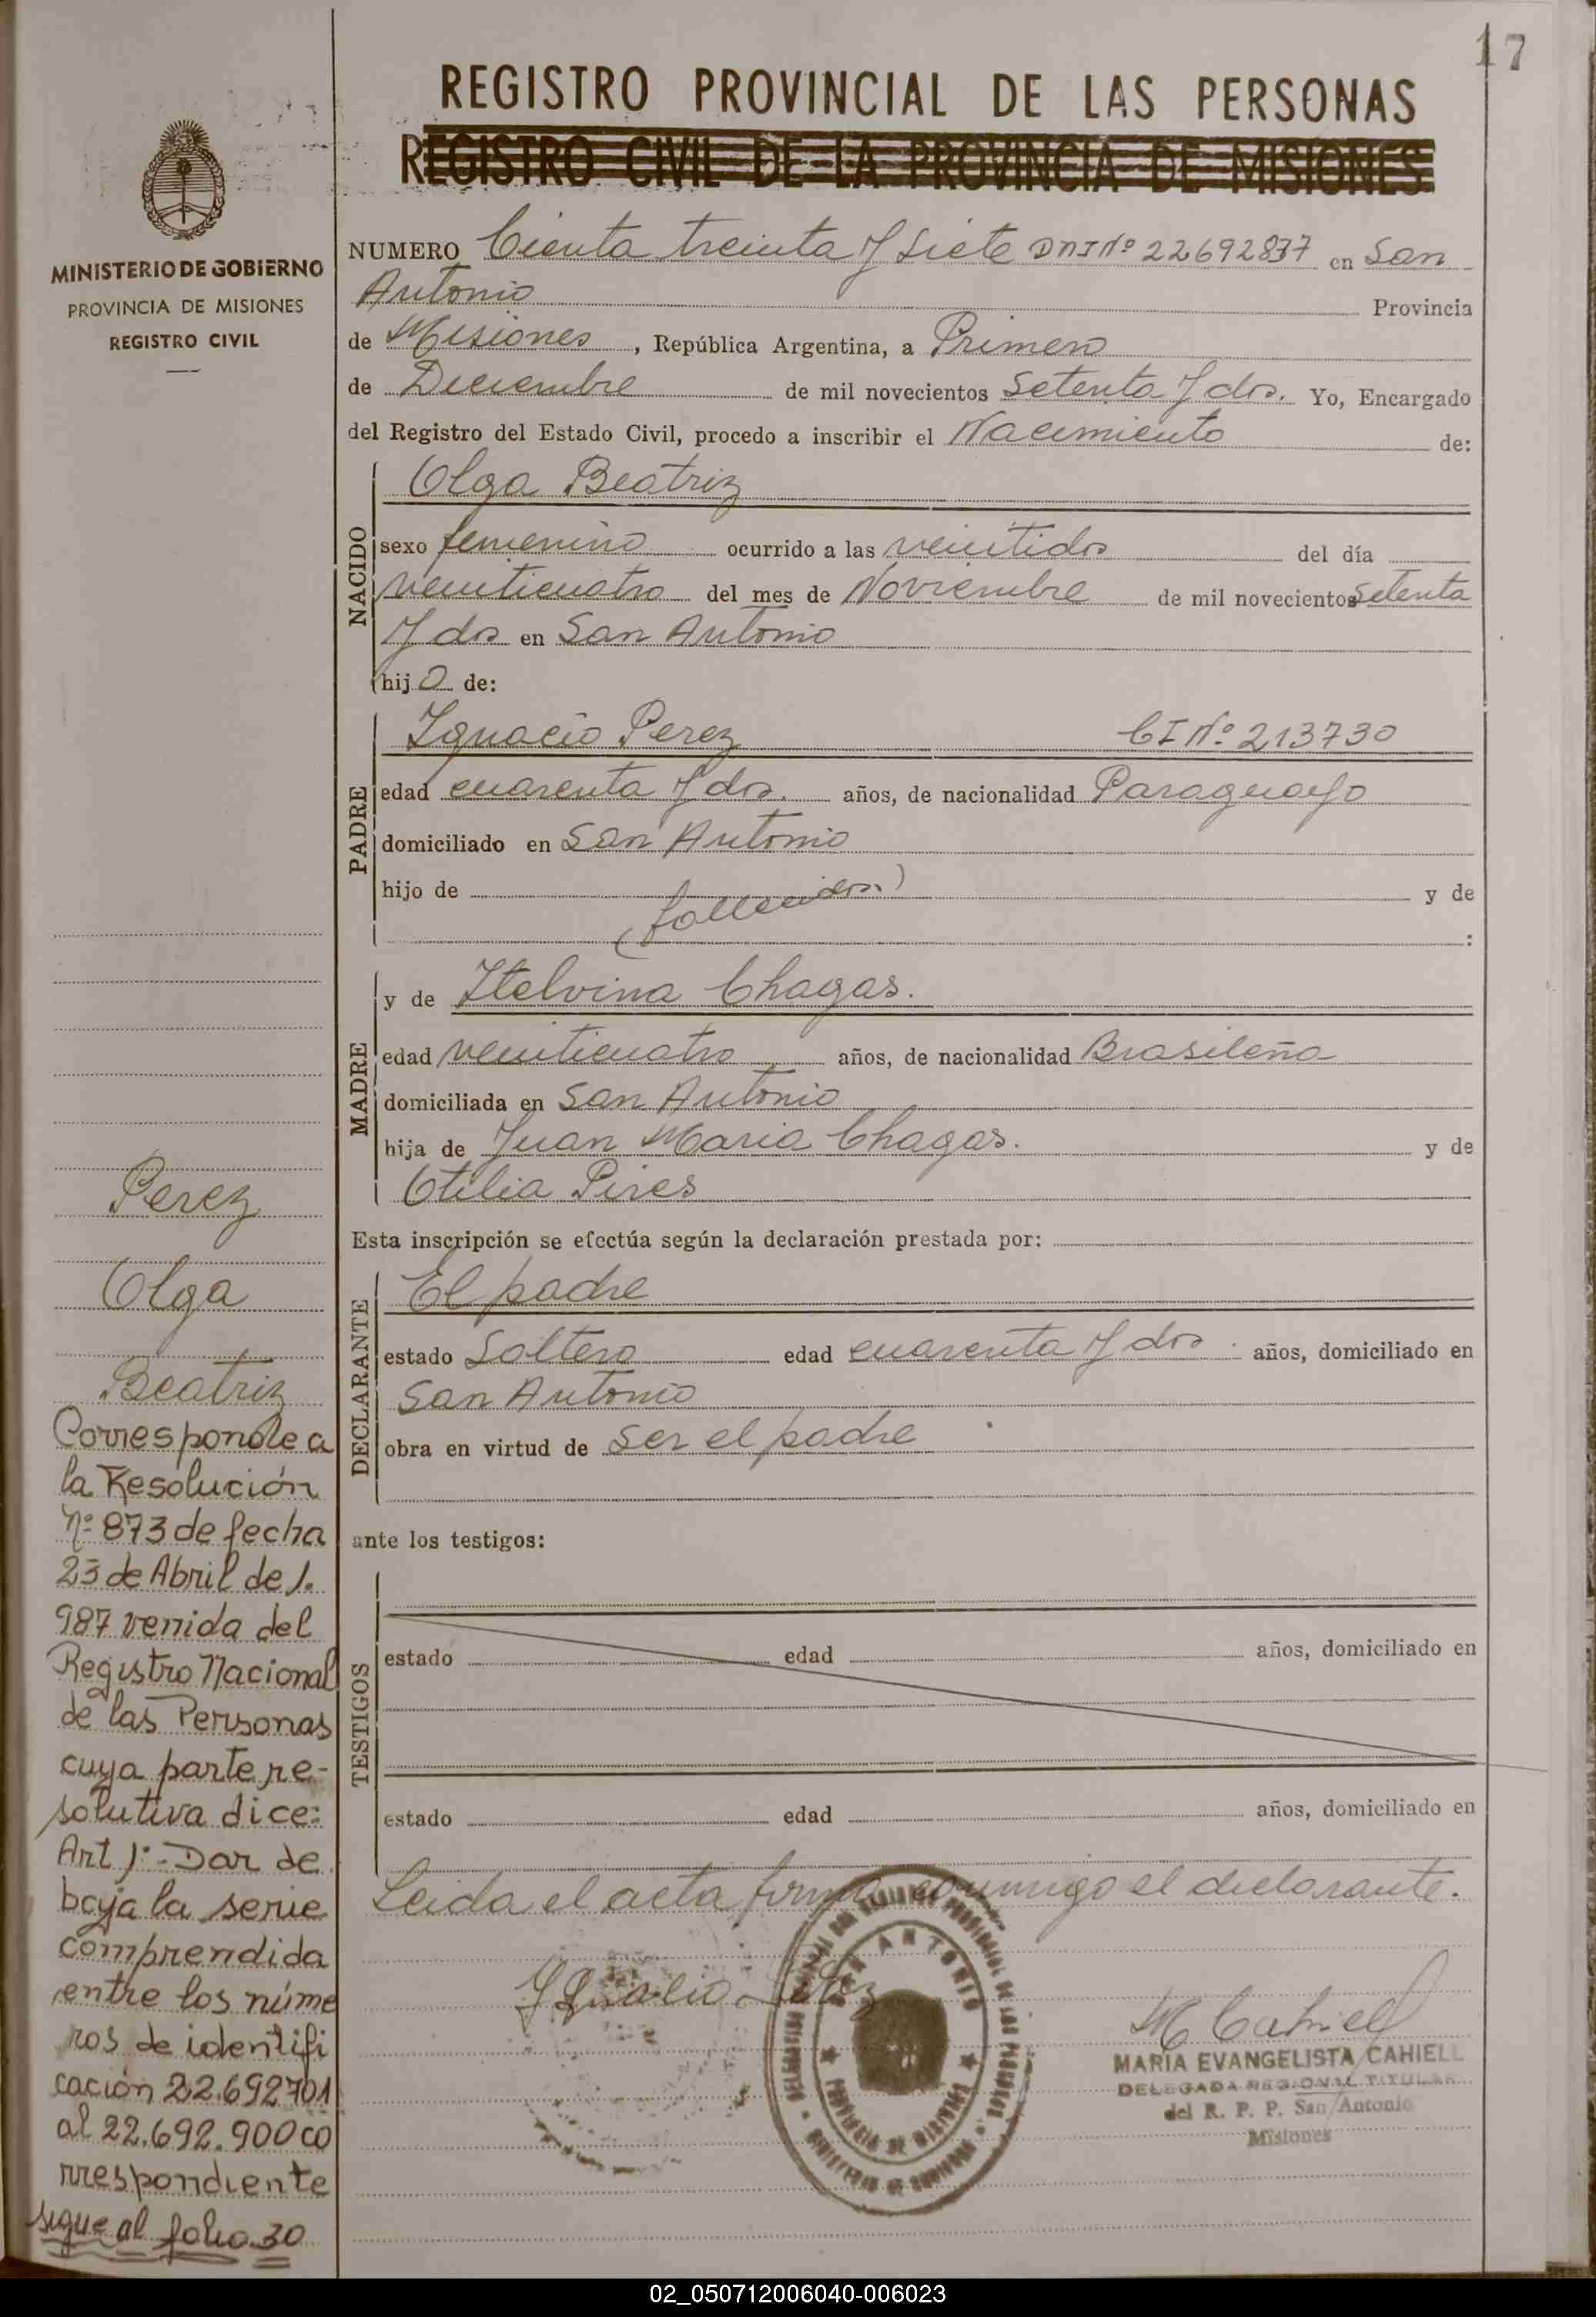 17
REGISTRO PROVINCIAL DE LAS PERSONAS
REGISTRO CIVIL DE LA PROVINCIA DE MISIONES
MINISTERIO DE GOBIERNO
PROVINCIA DE MISIONES
REGISTRO CIVIL
NUMERO Cienta treinta y Siete DNI Nº 22692837 en San
Antonio Provincia
de Misiones, República Argentina, a Primero
de Diciembre de mil novecientos Setenta y dos. Yo, Encargado
del Registro del Estado Civil, procedo a inscribir el Nacimiento de:
NACIDO
Olga Beatriz
sexo femenino ocurrido a las veintidos del día
veinticuatro del mes de Noviembre de mil novecientos Setenta
y dos en San Antonio
hij O de:
PADRE
Ignacio Perez CI Nº 213730
edad cuarenta y dos. años, de nacionalidad Paraguayo
domiciliado en San Antonio
hijo de (fallecidos) y de
:
MADRE
y de Itelvina Chagas.
edad veinticuatro años, de nacionalidad Brasileña
domiciliada en San Antonio
hija de Juan Maria Chagas. y de
Otilia Pires
Esta inscripción se efectúa según la declaración prestada por:
DECLARANTE
El padre
estado Soltero edad cuarenta y dos. años, domiciliado en
San Antonio
obra en virtud de Ser el padre
ante los testigos:
TESTIGOS
estado edad años, domiciliado en
estado edad años, domiciliado en
Leida el acta firma conmigo el declarante.
SAN ANTONIO
PROVINCIA DE MISIONES
M Cahiell
MARIA EVANGELISTA CAHIELL
DELEGADA REGIONAL TITULAR
del R. P. P. San Antonio
Misiones
Perez
Olga
Beatriz
Corresponde a
la Resolución
Nº 873 de fecha
23 de Abril de 1.
987 venida del
Registro Nacional
de las Personas
cuya parte re-
solutiva dice:
Art 1º- Dar de
baja la serie
comprendida
entre los núme
ros de identifi
cación 22.692701
al 22.692.900 co
rrespondiente
sigue al folio 30
02_050712006040-006023